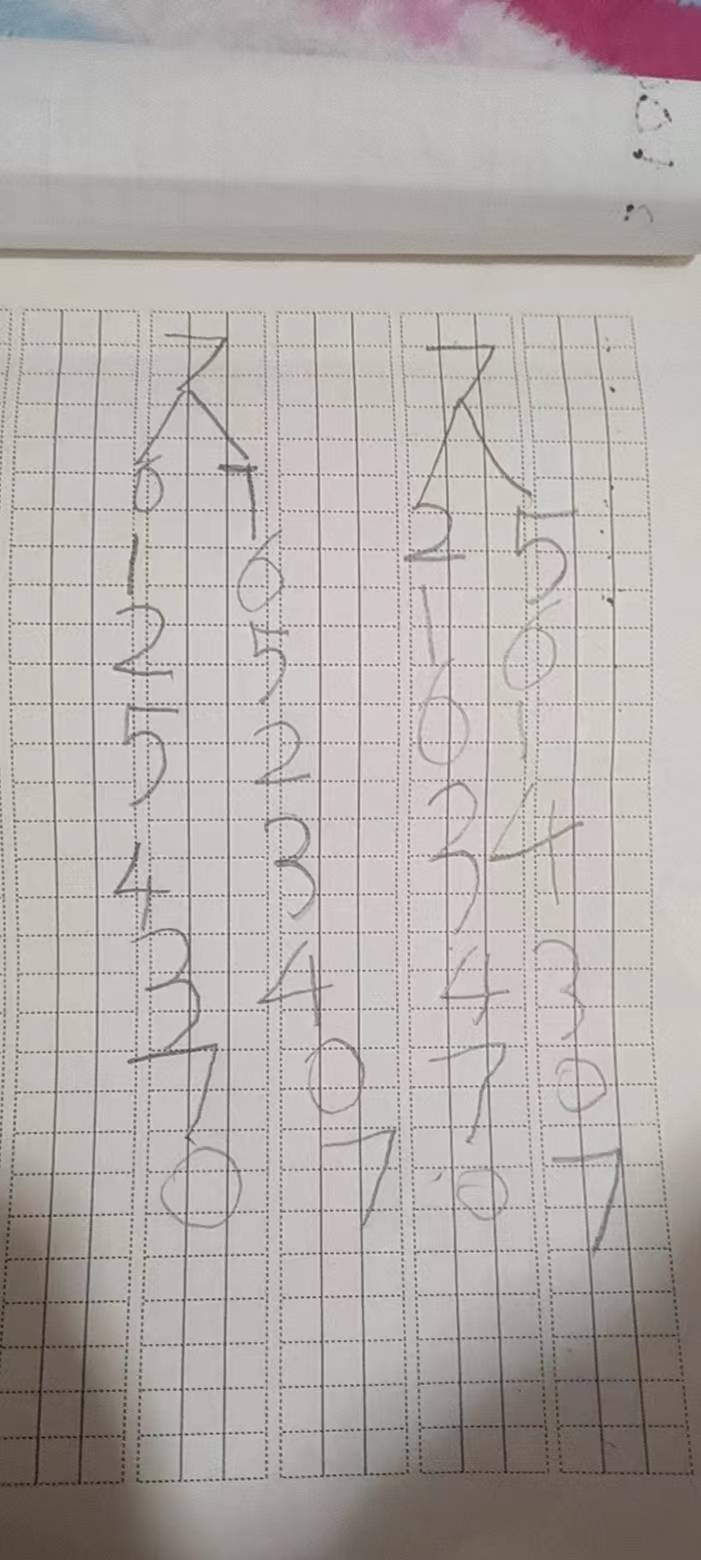 7
6 1
1 6
2 5
5 2
4 3
3 4
7 0
0 7
7
2 5
1 6
6 1
3 4
4 3
7 0
0 7